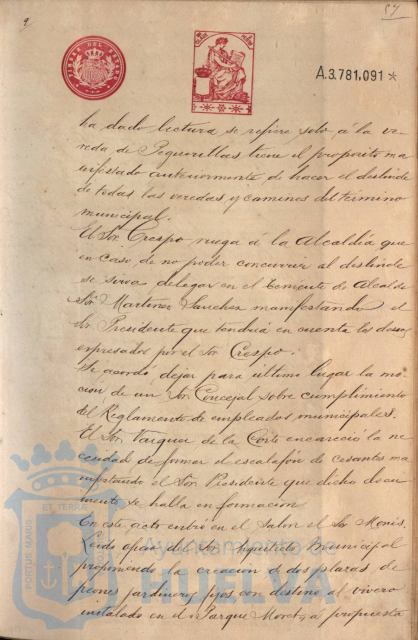 57
9
TIMBRE DEL ESTADO
A.3.781,091*
ha dado lectura se refiere solo, á la ve-
reda de Peguerillas tiene el propósito ma
nifestado anteriormente de hacer el deslinde
de todas las veredas y caminos del término
municipal.
El Sor. Crespo ruega á la Alcaldía que
en caso de no poder concurrir al deslinde
se sirva delegar en el Teniente de Alcalde
Sor. Martinez Sanchez manifestando el
Sr Presidente que tendrá en cuenta los deseos
expresados por el Sor Crespo.
Se acordó dejar para último lugar la mo-
ción de un Sor. Concejal sobre cumplimiento
del Reglamento de empleados municipales.
El Sor. Vazquez de la Corte encareció la ne
cesidad de formar el escalafón de cesantes ma
nifestando el Sor. Presidente que dicho docu-
mento se halla en formación
En este acto entró en el Salon el Sor Monis.
Leido oficio del Sor. Arquitecto Municipal
proponiendo la creacion de dos plazas de
peones jardineros fijos con destino al vivero
instalado en el Parque Moret, á propuesta
PORTUS MARIS ET TERRÆ
Ayuntamiento de
HUELVA